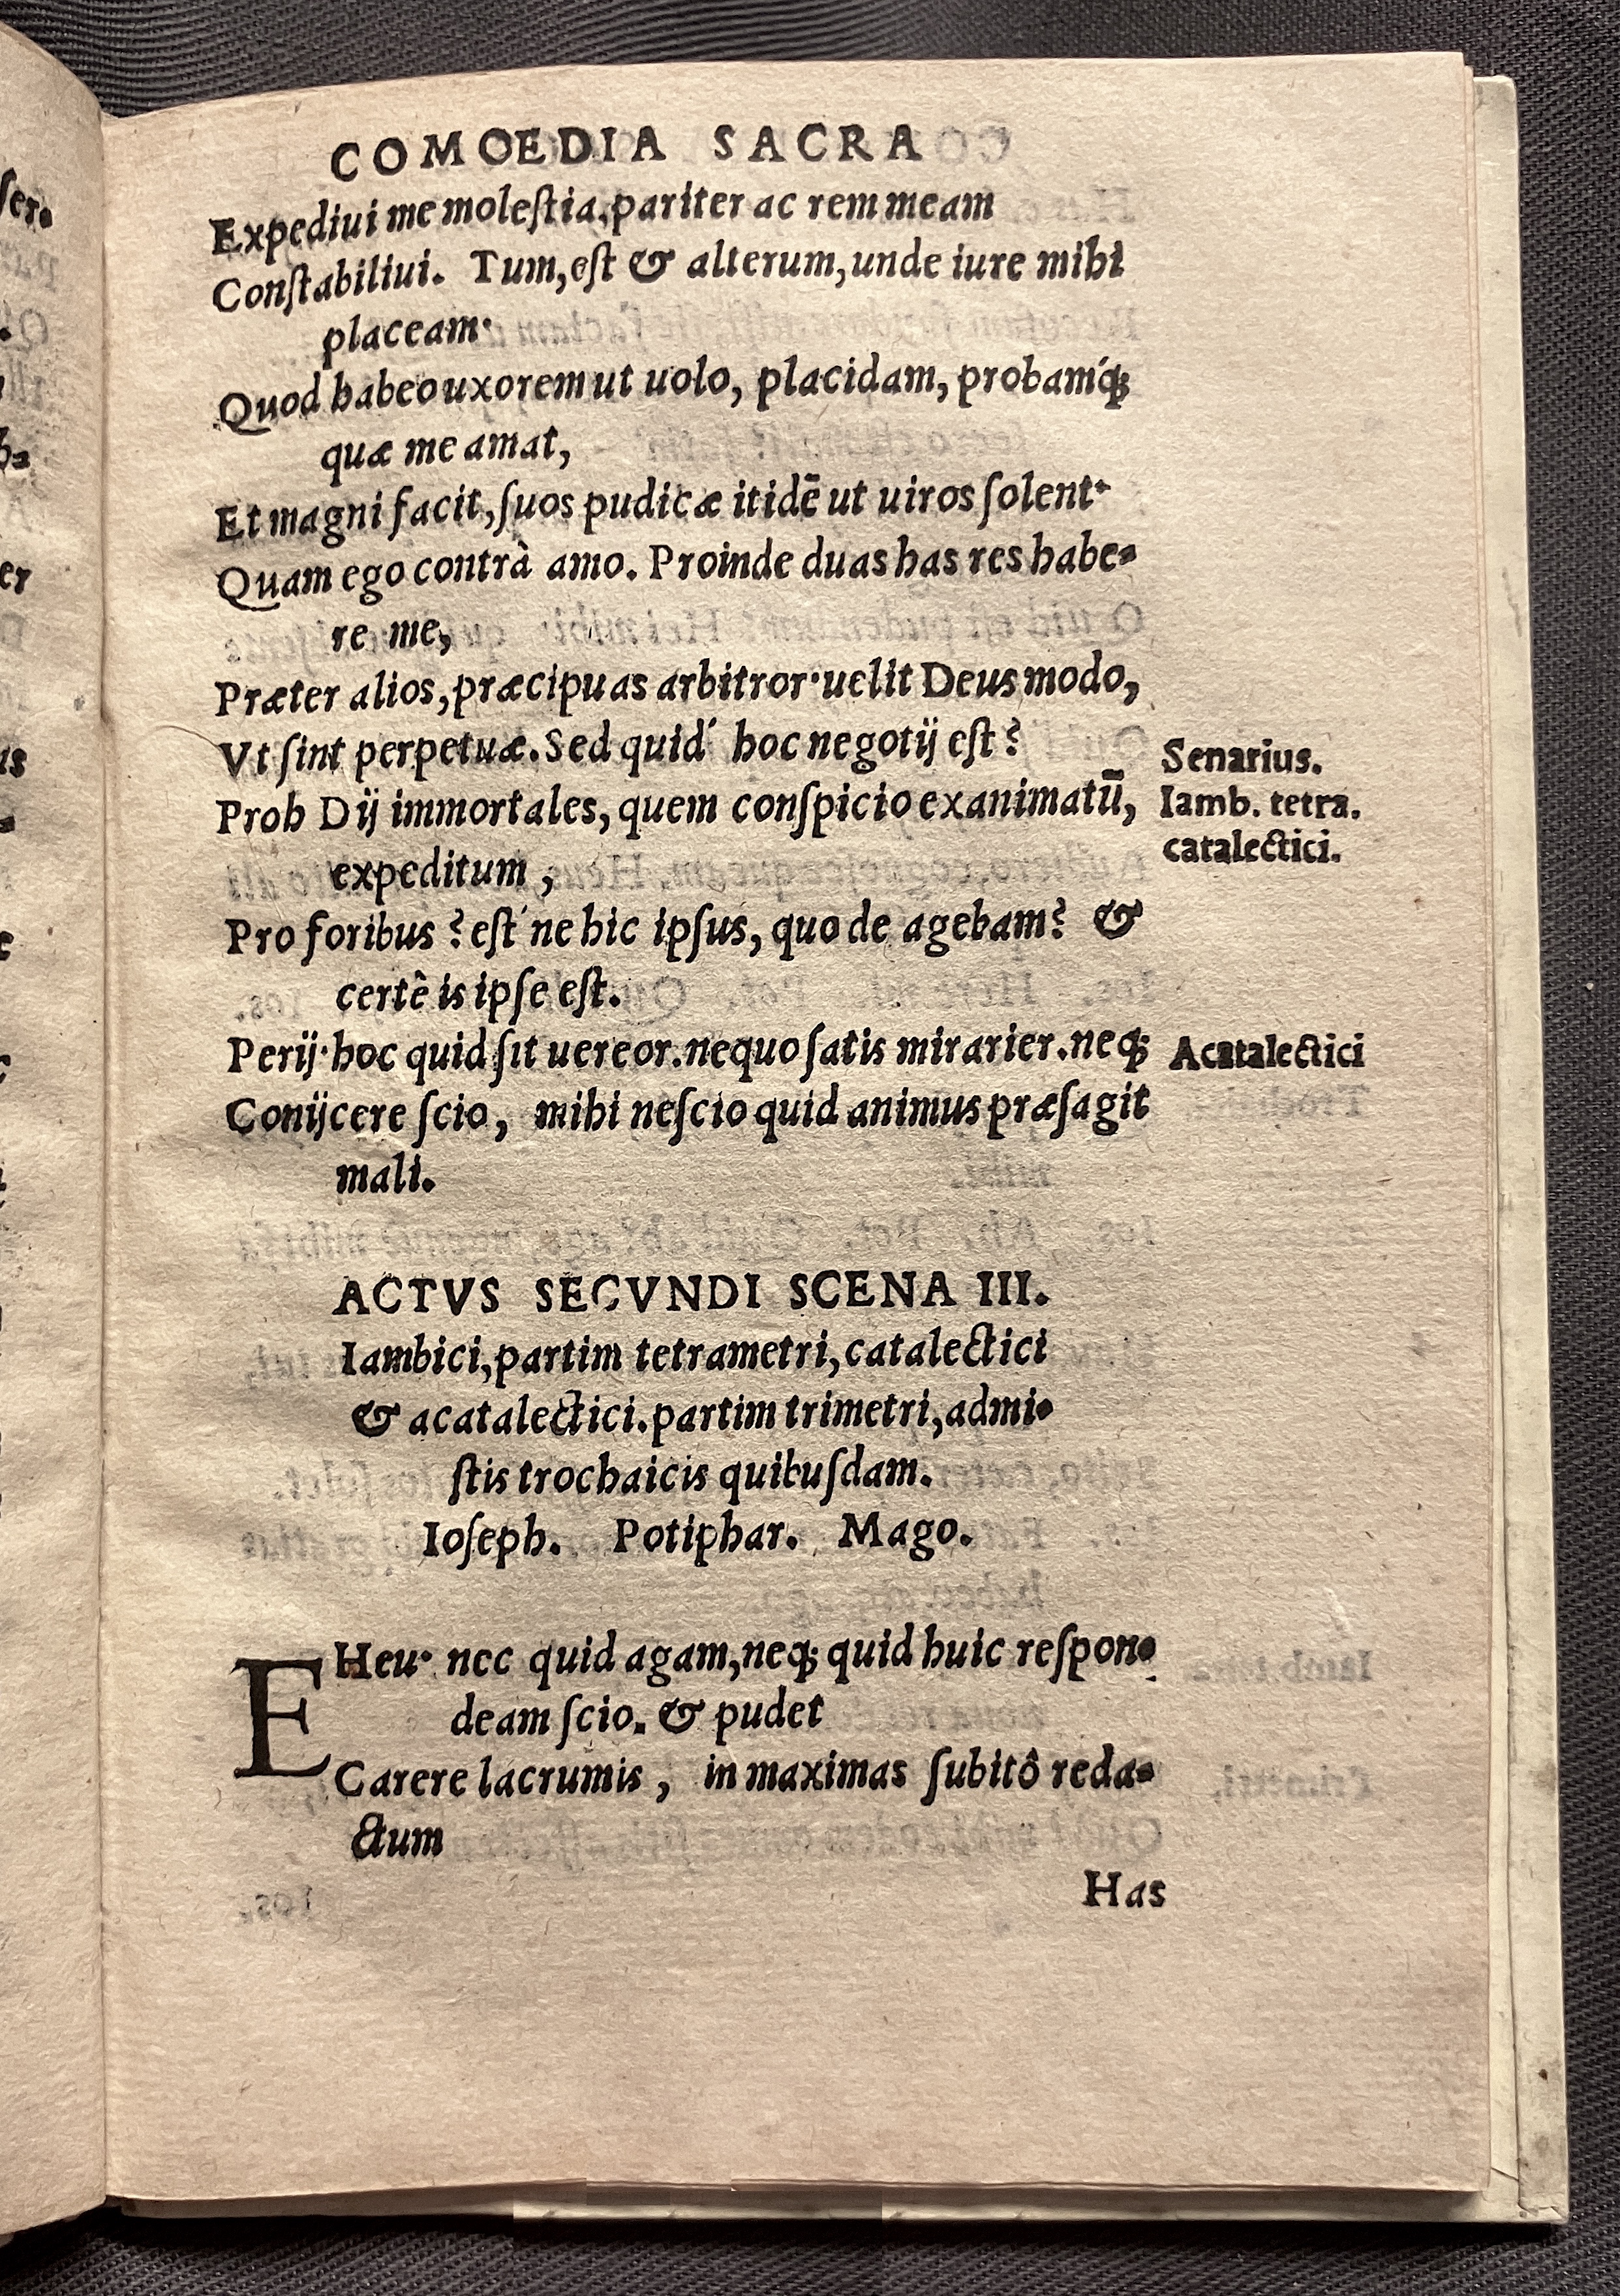 COMOEDIA SACRA
Expediui me molestia, pariter ac rem meam
Constabiliui. Tum, est & alterum, unde iure mihi
placeam·
Quod habeo uxorem ut uolo, placidam, probamq́;
quæ me amat,
Et magni facit, suos pudicæ itidē ut uiros solent·
Quam ego contrà amo. Proinde duas has res habe=
re me,
Præter alios, præcipuas arbitror· uelit Deus modo,
Vt sint perpetuæ. Sed quid' hoc negotij est?
Senarius.
Proh Dij immortales, quem conspicio exanimatū,
Iamb. tetra.
catalectici.
expeditum,
Pro foribus? est' ne hic ipsus, quo de agebam? &
certê is ipse est.
Perij· hoc quid sit uereor. nequo satis mirarier. neq;
Acatalectici
Conijcere scio, mihi nescio quid animus præsagit
mali.
ACTVS SECVNDI SCENA III.
Iambici, partim tetrametri, catalectici
& acatalectici. partim trimetri, admi=
stis trochaicis quibusdam.
Ioseph. Potiphar. Mago.
EHeu· nec quid agam, neq; quid huic respon=
deam scio. & pudet
Carere lacrumis, in maximas subitô reda=
ctum
Has